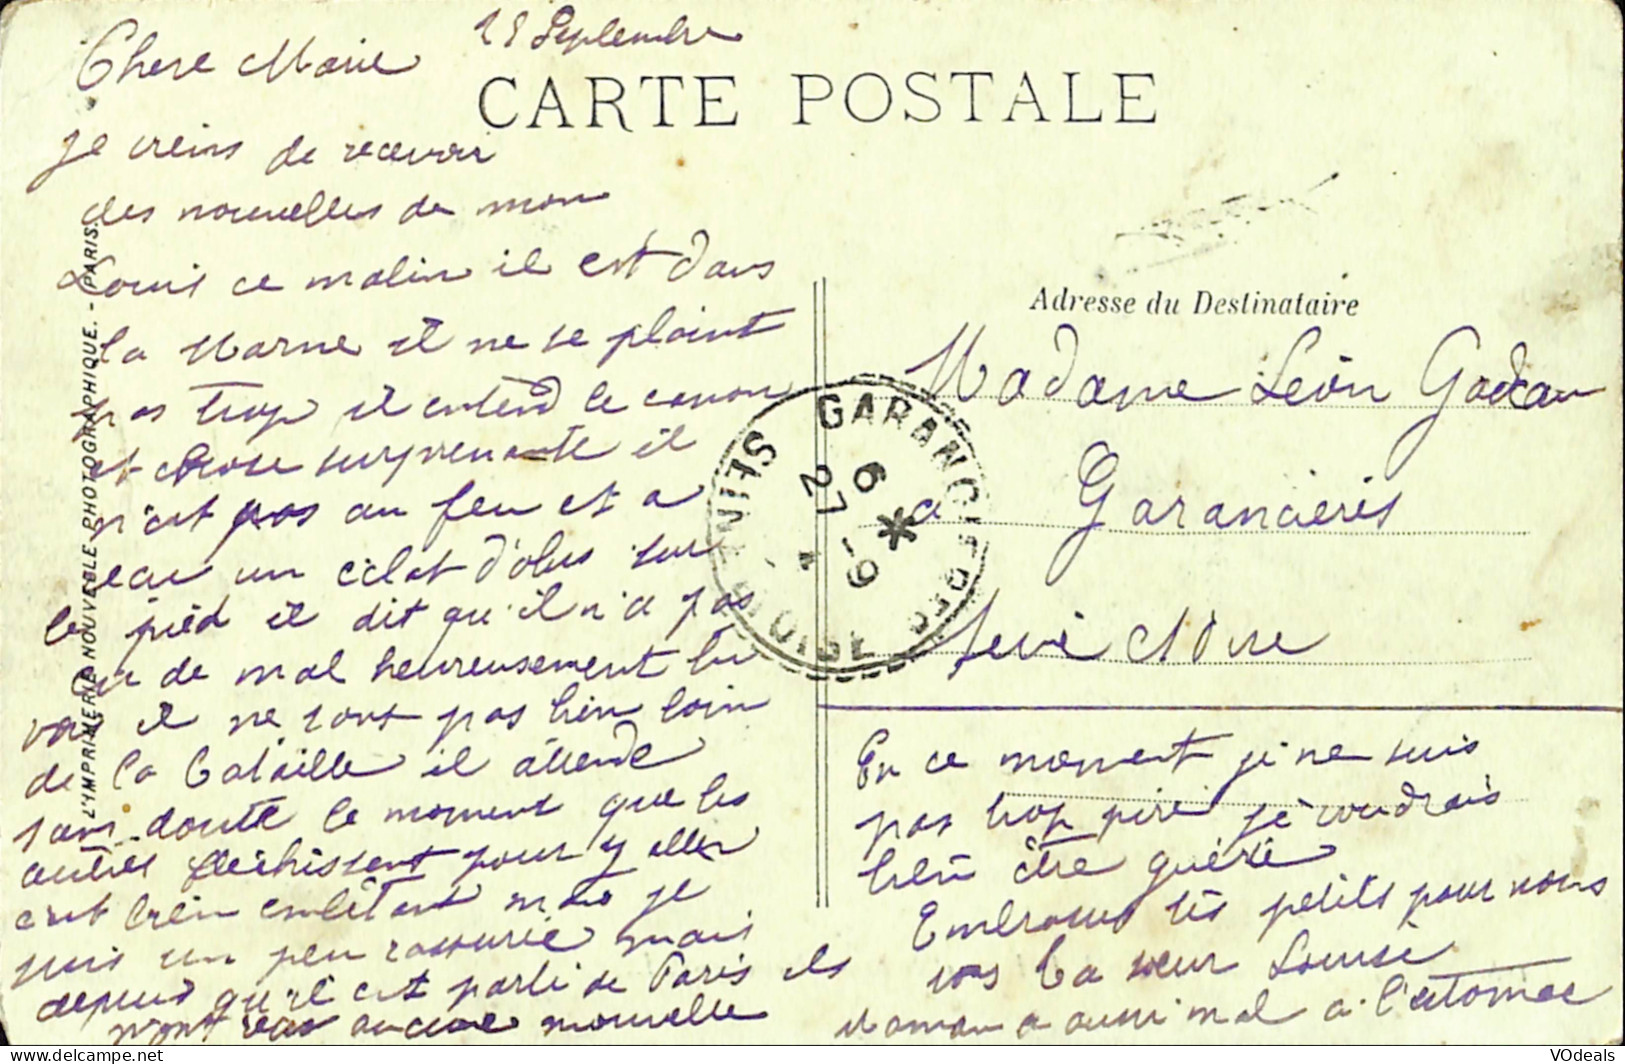 Chere Marie
CARTE POSTALE
je creins de recevoir
des nouvelles de mon
Louis ce matin il est dans
la Marne il ne se plaint
pas trop il entend le canon
et chose surprenante il
n'est pas au feu et a
un éclat d'obus sur
le pied il dit qu'il n'a pas
de mal heureusement tu
vois il ne sont pas bien loin
de la bataille il attende
sans doute le moment que les
autres fléchissent pour y aller
c'est bien embêtant mais je
suis un peu rassurie mais
depuis qu'il est parti de Paris ils
n'ont aucune nouvelle
L'IMPRIMERIE NOUVELLE PHOTOGRAPHIQUE. - PARIS.
GARANCIERES
SEINE ET OISE
6 *
27 - 9
Adresse du Destinataire
Madame Léon
a Garancieres
En ce moment je ne suis
pas trop pire je voudrais
bien être guérie
Embrasses tes petits pour nous
ta sœur Louise
Maman a aussi mal a l'estomac